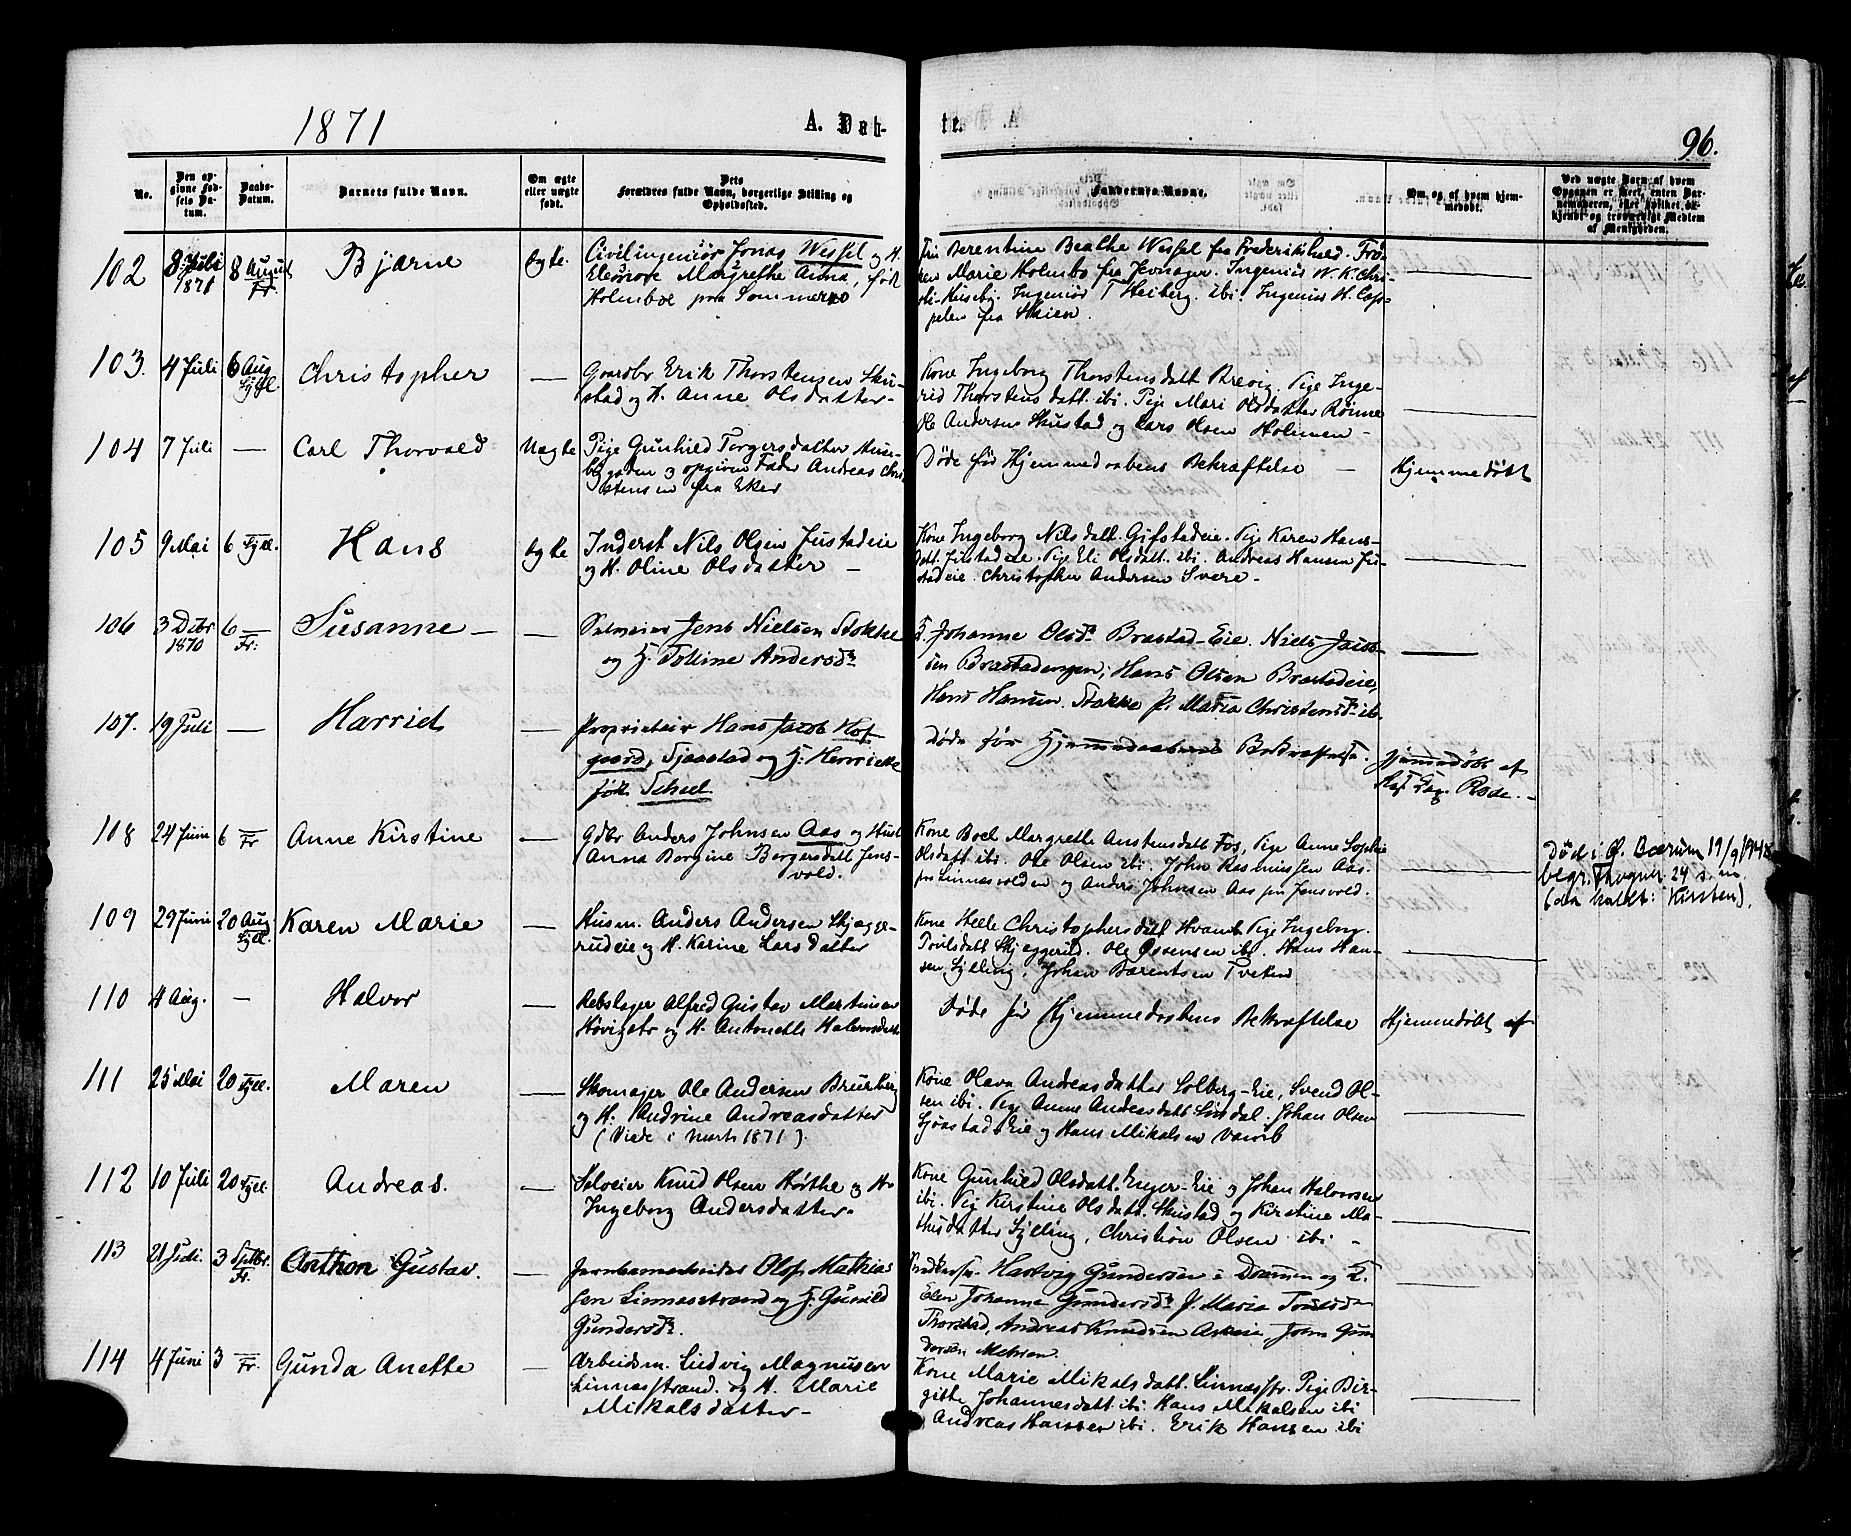 1871
A. Dåb-
te.
96.
No.
Den opgivne Fødselsdatum.
Daabs-Datum.
Barnets fulde Navn.
Om ægte eller uægte født.
Dets Forældres fulde Navn, borgerlige Stilling og Opholdssted.
Faddernes Navne.
Om, og af hvem hjemmedøbt.
102 8 Juli 1871 8 August Fr Bjarne ægte.
Civilingeniør Jonas Wessel og H.
Margrethe Anna, født
Holmboe paa Sommerro
Berentine Beathe Wessel fra Frederikshald. Frø-
ken Marie Holmbo fra Jevnager. Ingeniør W. K. Chri-
Huseby. Ingeniør T Heiberg. ibi. Ingeniør H. Cap-
pelen fra Skien.
103. 4 Juli 6 Aug Syll. Christopher
Gaardbr Erik Thorstensen Sku-
stad og H. Anne Olsdatter-
Kone Ingeborg Thorstensdatt Brevig. Pige Inge-
rid Thorstensdatt. ibi. Pige Mari Olsdatter Rønne
Ole Andersen Skustad og Lars Olsen Holmen-
104 7 Juli Carl Thorvald Uægte
Pige Gunhild Torgersdatter Huse-
bygaden og opgiven Fader Andreas Chri
stensen fra Eker
Døde før Hjemmedaabens Bekræftelse
Hjemmedøbt
105 9 Mai 6 Syll. Hans ægte
Inderst Nils Olsen Justadeie
og H. Oline Olsdatter
Kone Ingeborg Nilsdatt. Gifstadeie. Pige Karen Hans-
datt. Justadeie. Pige Eli Olsdatt. ibi. Andreas Hansen Ju-
stadeie. Christopher Andersen Svere-
106 3 Dcbr 1870 6 Fr: Susanne
Selveier Jens Nielsen Stokke
og H. Toline Andersdr
K. Johanne Olsdr Brastad-Eie. Niels
sen Brastadengen, Hans Olsen Brastadeie,
Hans Hansen Stokke P. Maria Christensdr ib
107. 19 Juli Harriet
Proprietair Hans Jacob Hof-
gaard, Sjaastad og H. Henriette
født Scheel
Døde før Hjemmedaabens Bekræftelse.
Hjemmedøbt af
Rode.
108 24 Juni 6 Fr Anne Kirstine
Gdbr Anders Johnsen Aas og Hust
Anna Borgine Borgersdatt Jens-
vold.
Kone Boel Margrethe Anstensdatt Fos, Pige Anne Sophie
Olsdatt ibi. Ole Olsen ibi. John Rasmussen Aas.
og Anders Johnsen Aas Jensvold.
Død i Ø. Bærum 19/9 1948
begr. Haugner 24 s.m.
(da kaldt: Kirsten).
109 29 Juni 20 Aug Syll. Karen Marie
Husm. Anders Andersen Skjægge-
rudeie og H. Karine Larsdatter
Kone Helle Christophersdatt Hvamb Pige Ingeborg
Skjæggerud. Ole Evensen ibi. Hans Han-
sen Sylling, Johan Barentsen Tveten
110 4 Aug. Halvor
Rebslager Alfred Gustav Martinsen
og H. Antonette Halvorsdatt
Døde før Hjemmedaabens Bekræftelse
Hjemmedøbt af
111 25 Mai 20 Syll. Maren
Skomager Ole Andersen Brurberg
og H. Andrine Andreasdatter
(Viede i Marts 1871).
Kone Olava Andreasdatter Solberg-Eie, Svend Ol-
sen ibi. Pige Anne Andreasdatt Lindal. Johan Olsen
Sjøastad-Eie og Hans Mikalsen
112 10 Juli 20 Syll. Andreas.
Selveier Knud Olsen Høithe og H.
Ingeborg Andersdatter.
Kone Gunhild Olsdatt. Enger-Eie og Johan Halvorsen
ibi. Pige Kirstine Olsdatt. Skustad og Kirstine Ma-
thisdatter Sylling, Christian Olsen ibi -
113 21 Juli. 3 Septbr. Fr. Anthon Gustav.
Jernbanearbeider Olof Mathias
sen Linnesstrand og H. Gunild
Gundersdr.
Hartvig Gundersen i Drammen og K.
Elen Johanne Gundersdr P. Maria
Thorstad, Andreas Knudsen Askeie, John Gun
dersen Mehren.
114 4 Juni 3 Fr. Gunda Anette
Arbeidsm. Ludvig Magnusen
Linnesstrand. og H. Marie
Mikalsdatter-
Kone Marie Mikalsdatt. Linnesstr. Pige Bir-
gitte Johannesdatt ibi Hans Mikalsen ibi
Andreas Hansen ibi. Erik Hansen ibi